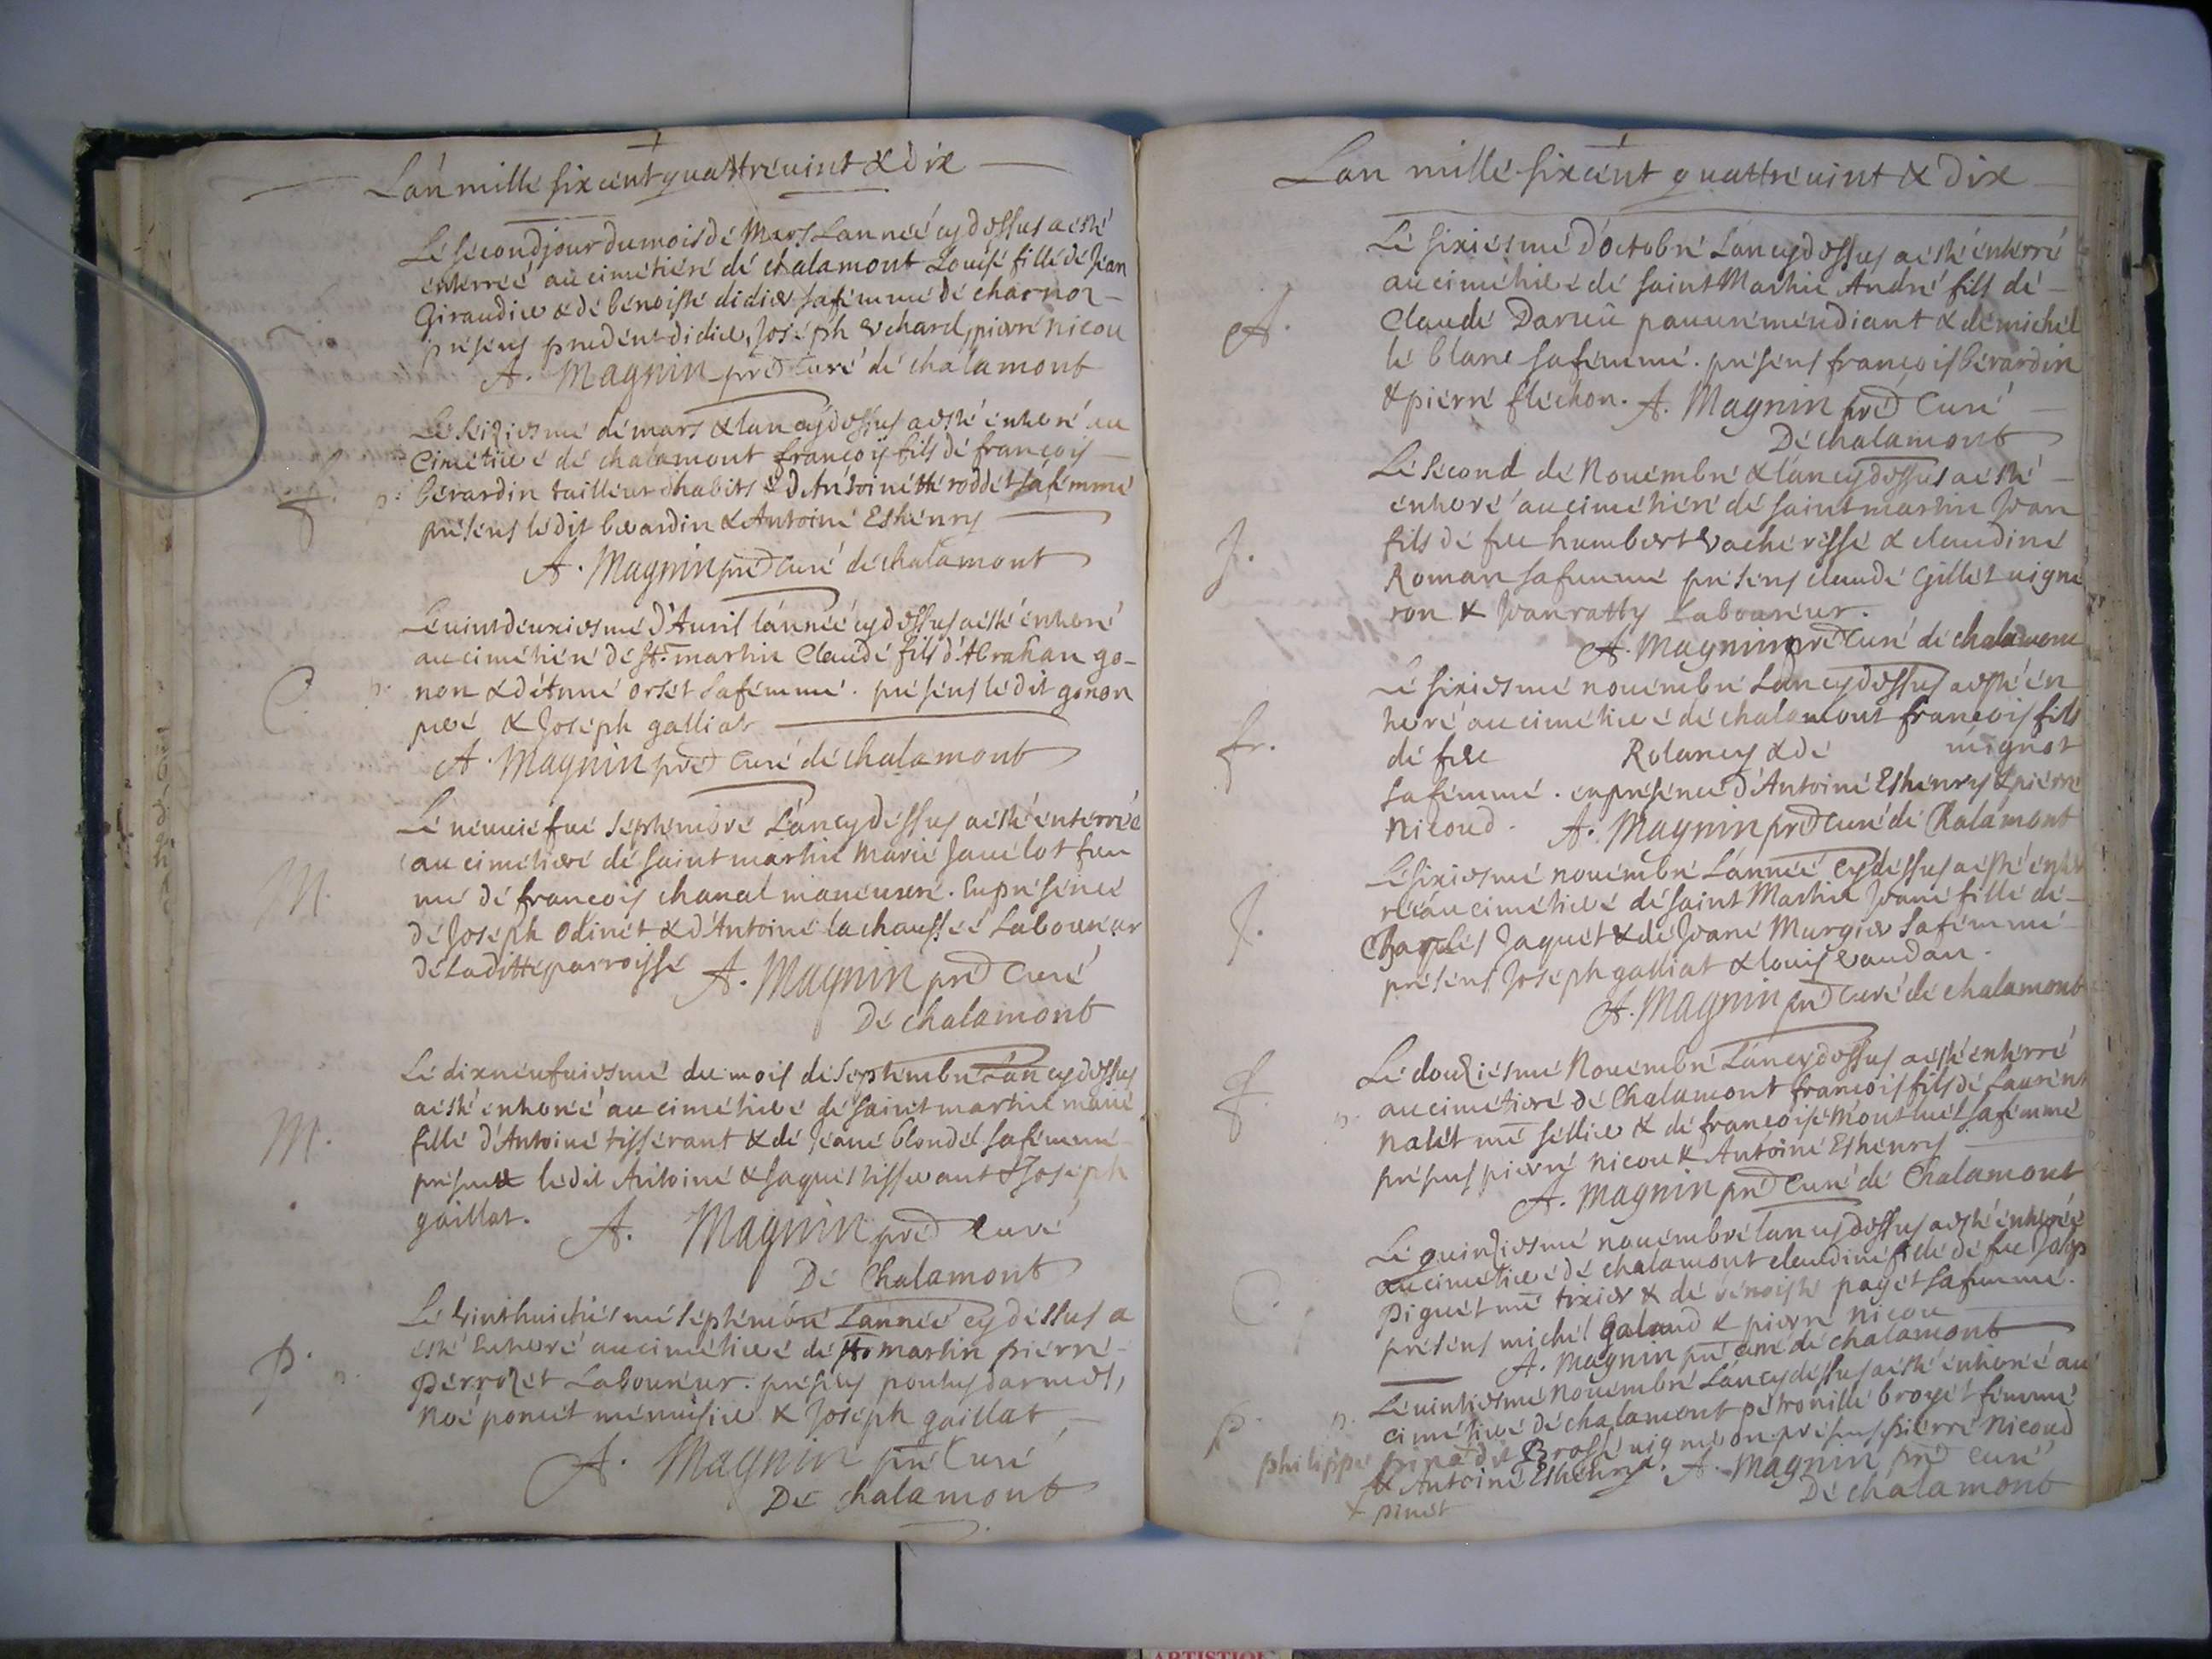 Lan mille six cent quattre vint & dix
Le second jour du mois de Mars Lannéé cy dessus a esté
enterréé au cimetiere de chalamont Louise fille de Jean
Giraudier & de benoiste didier sa femme de charnoz
presens prudent didier, Joseph Vchard, pierre nicou
A. Magnin pred Curé de chalamont
Le seiziesme de mars & lan cy dessus a esté enterré au
Cimetiere de chalamont françois fils de françois
F. p. berardin tailleur dhabits & dAntoinette roddet sa femme
presens ledit berardin & Antoine Esthenry
A. Magnin pred Curé de chalamont
Le vintdeuxiesme d'Auril lannéé cy dessus a esté enterré
au cimetiere de st. martin Claude fils d'Abrahan go-
C. p. non & d'Anne orset sa femme. presens ledit gonon
pere & Joseph galliat
A. Magnin pred Curé de chalamont
Le septembre Lan cy dessus a esté enterréé
au cimetiere de saint martin Marie Janelot fem
M. me de françois chanal maneuure. En presence
de Joseph Odinet & d'Antoine la chaussée Laboureur
de Laditte parroisse A. Magnin pred Curé
De chalamont
Le dixneufuiesme du mois de Septembre Lan cy dessus
a esté enterréé au cimetiere de saint martin marie
M. fille d'Antoine tisserant & de Jeane blondel sa femme
ledit Antoine & Jaques tisserant & Joseph
gaillat. A. Magnin pred Curé
De Chalamont
Le vinthuictiesme septembre Lannéé cy dessus a
esté Enterré au cimetiere de st. martin pierre
P. p. perrozet Laboureur. presens pontus darmet,
Noé poncet menuisier & Joseph gaillat
A. Magnin pre Curé
De chalamont
Lan mille six cent quattre vint & dix
Le sixiesme d'octobre Lan cy dessus a esté enterré
au cimetiere de saint Martin André fils de
A. Claude Darüe pauure mendiant & de michel
le blanc sa femme. presens françois berardin
& pierre flechon. A. Magnin pred Curé
De chalamont
Le Second de Nouembre & lan cy dessus a esté
enterré au cimetiere de saint martin Jean
J. fils de feu humbert Vacheresse & claudine
Roman sa femme presens claude Gillet uigne
ron & Jean ratty Laboureur.
A. Magnin pre Curé de chalamont
Le sixiesme nouembre Lan cy dessus a esté en
terré au cimetiere de chalamont francois fils
fr. de feu Rolancy & de mignot
sa femme. en presence d'Antoine Esthenry & pierre
Nicoud. A. Magnin pred Curé de Chalamont
Le sixiesme nouembre Lannéé cy dessus a esté enter
réé au cimetiere de saint Martin Jeane fille de
J. Charles Jaquet & de Jeane Murgier sa femme
presens Joseph galliat & louis Vaudan.
A. Magnin pred Curé de chalamont
Le douziesme Nouembre Lan cy dessus a esté enterré
F. au cimetiere de Chalamont francois fils de Laurent
p. nalet me sellier & de françoise montluel sa femme
presens pierre nicou & Antoine Esthenry
A. Magnin pred Curé de Chalamont
Le quinziesme nouembre lan cy dessus a esté enterréé
au cimetiere de chalamont claudine fille de feu
C. piguet me tixier & de benoiste paget sa femme.
presens michel Galand & pierre nicou
A. Magnin pre curé de chalamont
Le vintiesme Nouembre Lan cy dessus a esté enterréé au
P. p. cimetiere de chalamont petronille broyet femme
philippe pina dit Brosse uigneron. presens pierre Nicoud
& Antoine Esthenry. A. Magnin pred Curé
De chalamont
+ pinet